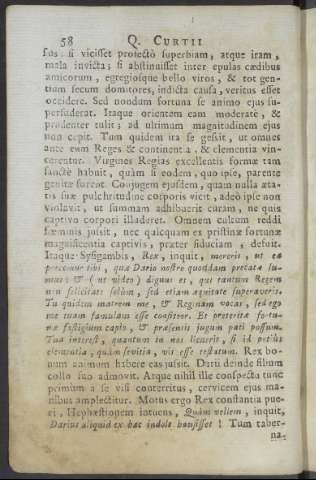 58 Q. CURTII
sos: si vicisset profectò superbiam, atque iram,
mala invicta; si abstinuisset inter epulas cædibus
amicorum, egregiosque bello viros, & tot gen-
tium secum domitores, indicta causa, veritus esset
occidere. Sed nondum fortuna se animo ejus su-
perfuderat. Itaque orientem eam moderatè, &
prudenter tulit; ad ultimum magnitudinem ejus
non cepit. Tum quidem ita se gessit, ut omnes
ante eum Reges & continentia, & clementia vin-
cerentur. Virgines Regias excellentis formæ tam
sanctè habuit, quàm si eodem, quo ipse, parente
genitæ forent. Conjugem ejusdem, quam nulla æta-
tis suæ pulchritudine corporis vicit, adeò ipse non
violavit, ut summam adhibuerit curam, ne quis
captivo corpori illuderet. Omnem cultum reddi
fœminis jussit, nec quicquam ex pristinæ fortunæ
magnificentia captivis, præter fiduciam, defuit.
Itaque Sysigambis, Rex, inquit, mereris, ut ea
precemur tibi, quæ Dario nostro quondam precatæ su-
mus: & (ut video) dignus es, qui tantum Regem
non felicitate solùm, sed etiam æquitate superaveris.
Tu quidem matrem me, & Reginam vocas, sed ego
me tuam famulam esse confiteor. Et præteritæ fortu-
næ fastigium capio, & præsentis jugum pati possum.
Tua interest, quantum in nos licuerit, si id potiùs
clementia, quàm sævitia, vis esse testatum. Rex bo-
num animum habere eas jussit. Darii deinde filium
collo suo admovit. Atque nihil ille conspectu tunc
primùm a se visi conterritus, cervicem ejus ma-
nibus amplectitur. Motus ergo Rex constantia pue-
ri, Hephæstionem intuens, Quàm vellem, inquit,
Darius aliquid ex hac indole hausisset! Tum taber-
na-